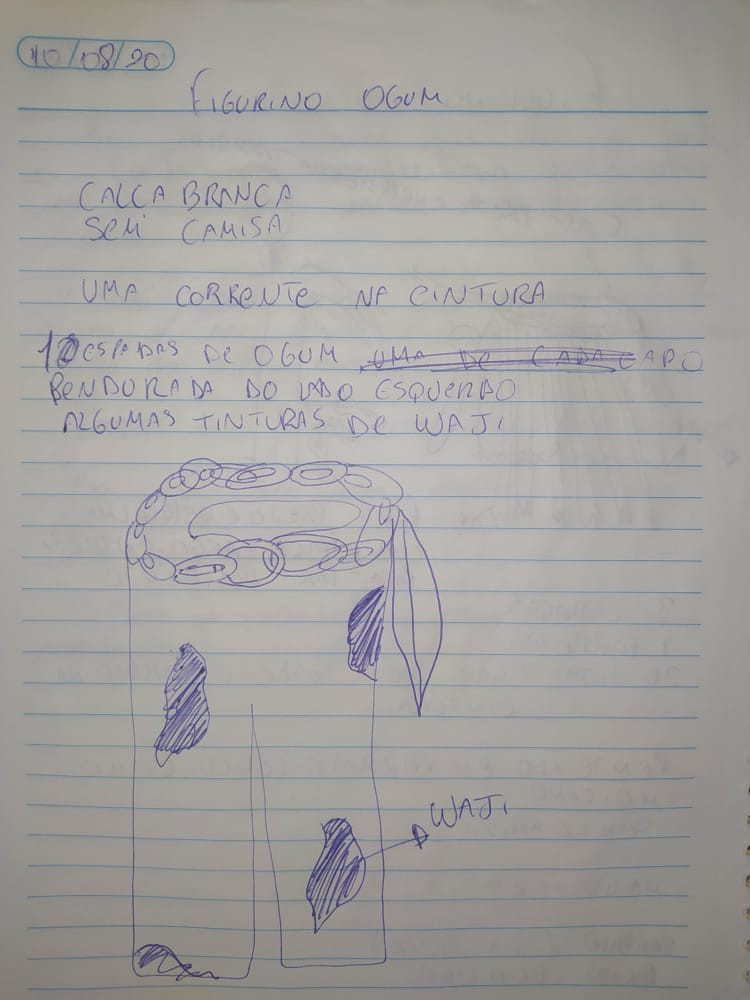 10/08/20
FIGURINO OGUM
CALCA BRANCA
SEM CAMISA
UMA CORRENTE NA CINTURA
ESPADAS DE OGUM UMA DE CADA LADO
PENDURADA DO LADO ESQUERDO
ALGUMAS TINTURAS DE WAJI
WAJI